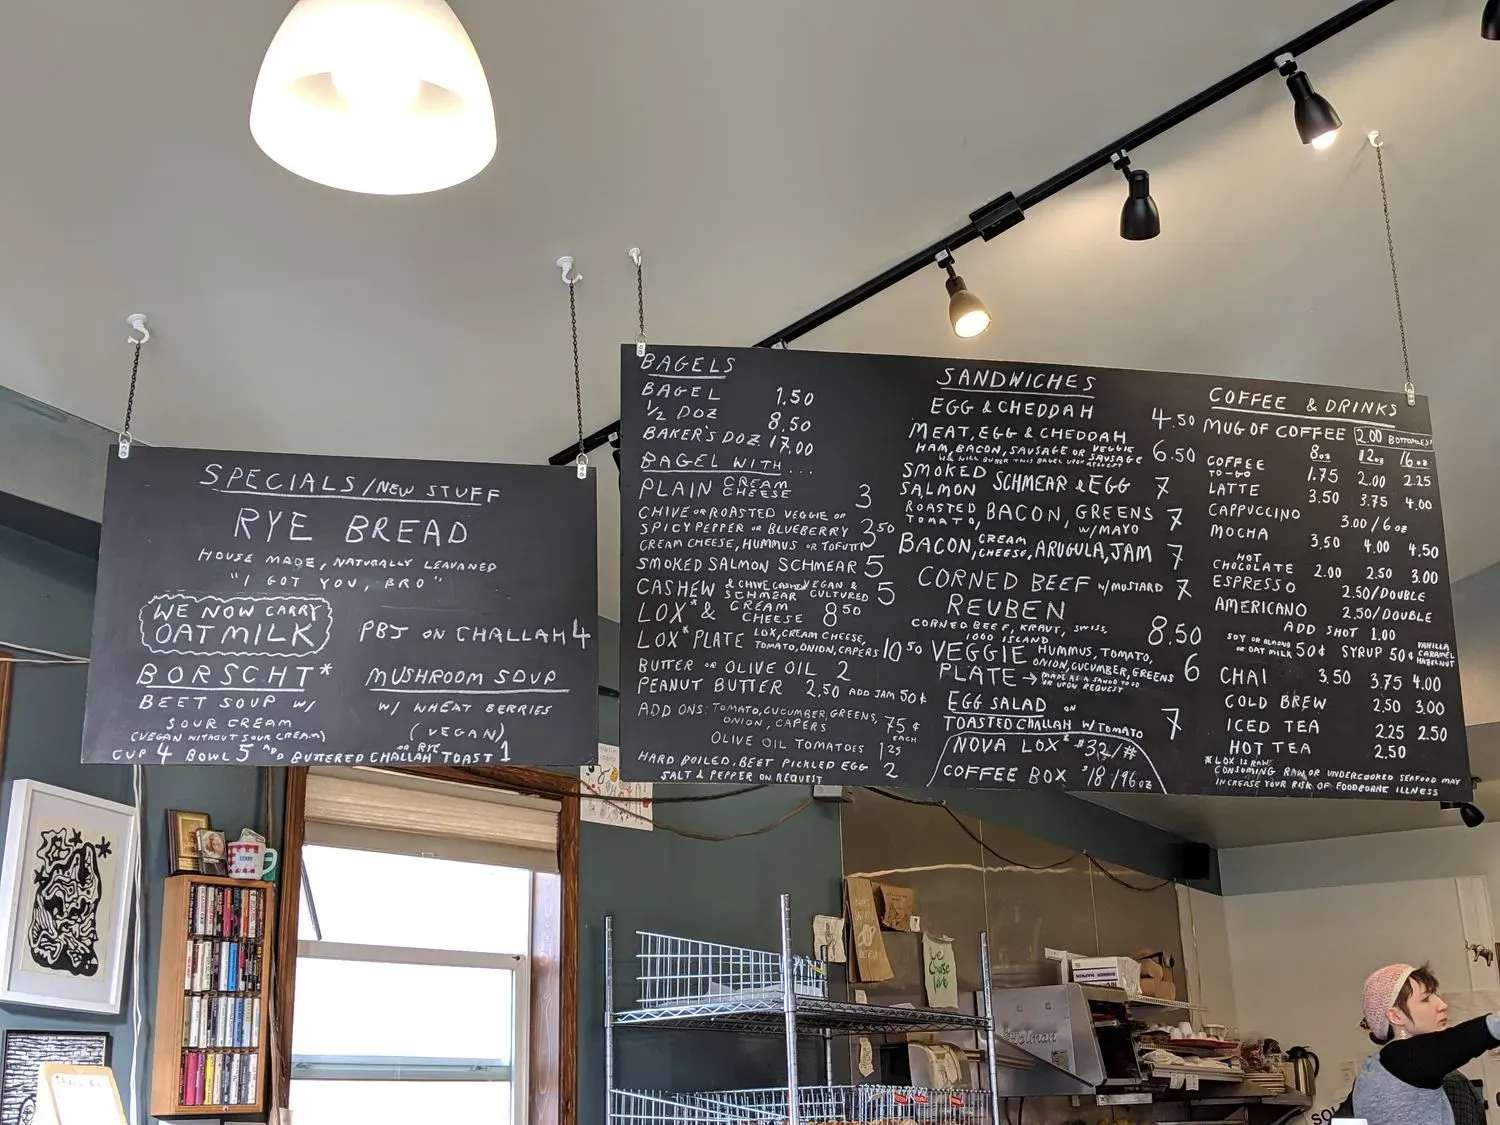 SPECIALS/NEW STUFF
RYE BREAD
HOUSE MADE, NATURALLY LEAVANED
"I GOT YOU, BRO"
WE NOW CARRY
OATMILK
PBJ ON CHALLAH 4
BORSCHT*
BEET SOUP W/
SOUR CREAM
(VEGAN WITHOUT SOUR CREAM)
MUSHROOM SOUP
W/ WHEAT BERRIES
(VEGAN)
OR RYE
CUP 4 BOWL 5 ADD BUTTERED CHALLAH TOAST 1
BAGELS
BAGEL 1.50
1/2 DOZ 8.50
BAKER'S DOZ. 17.00
BAGEL WITH...
PLAIN CREAM CHEESE 3
CHIVE OR ROASTED VEGGIE OR
SPICY PEPPER OR BLUEBERRY 3.50
CREAM CHEESE, HUMMUS OR TOFUTTI
SMOKED SALMON SCHMEAR 5
CASHEW & CHIVE CASHEW SCHMEAR VEGAN & CULTURED 5
LOX* & CREAM CHEESE 8.50
LOX* PLATE LOX, CREAM CHEESE, 10.50
TOMATO, ONION, CAPERS
BUTTER OR OLIVE OIL 2
PEANUT BUTTER 2.50 ADD JAM 50¢
ADD ONS: TOMATO, CUCUMBER, GREENS, 75¢
ONION, CAPERS EACH
OLIVE OIL TOMATOES 1.25
HARD BOILED, BEET PICKLED EGG 2
SALT & PEPPER ON REQUEST
SANDWICHES
EGG & CHEDDAH 4.50
MEAT, EGG & CHEDDAH 6.50
HAM, BACON, SAUSAGE OR VEGGIE SAUSAGE
WE WILL BUTTER THIS BAGEL UPON REQUEST
SMOKED SALMON SCHMEAR & EGG 7
ROASTED TOMATO, BACON, GREENS W/MAYO 7
BACON, CREAM CHEESE, ARUGULA, JAM 7
CORNED BEEF W/MUSTARD 7
REUBEN 8.50
CORNED BEEF, KRAUT, SWISS,
1000 ISLAND
VEGGIE PLATE HUMMUS, TOMATO, 6
ONION, CUCUMBER, GREENS
→ MADE AS A SANDO TOO
OR UPON REQUEST
EGG SALAD ON 7
TOASTED CHALLAH W/ TOMATO
NOVA LOX* $32/#
COFFEE BOX $18/96oz
COFFEE & DRINKS
MUG OF COFFEE 2.00 BOTTOMLESS
8oz 12oz 16oz
COFFEE TO-GO 1.75 2.00 2.25
LATTE 3.50 3.75 4.00
CAPPUCCINO 3.00/6oz
MOCHA 3.50 4.00 4.50
HOT CHOCOLATE 2.00 2.50 3.00
ESPRESSO 2.50/DOUBLE
AMERICANO 2.50/DOUBLE
ADD SHOT 1.00
SOY OR ALMOND OR OAT MILK 50¢ SYRUP 50¢ VANILLA CARAMEL HAZELNUT
CHAI 3.50 3.75 4.00
COLD BREW 2.50 3.00
ICED TEA 2.25 2.50
HOT TEA 2.50
* LOX IS RAW.
CONSUMING RAW OR UNDERCOOKED SEAFOOD MAY
INCREASE YOUR RISK OF FOODBORNE ILLNESS
we choose love
DINNER NAPKIN